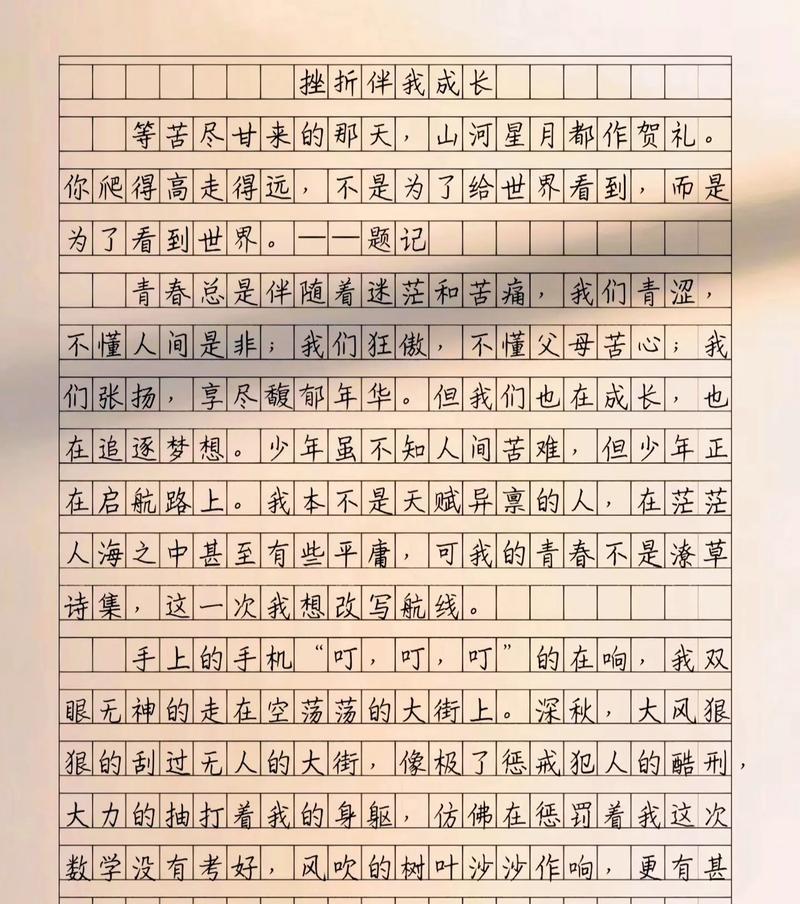 挫折伴我成长
等苦尽甘来的那天，山河星月都作贺礼。
你爬得高走得远，不是为了给世界看到，而是
为了看到世界。——题记
青春总是伴随着迷茫和苦痛，我们青涩，
不懂人间是非；我们狂傲，不懂父母苦心；我
们张扬，享尽馥郁年华。但我们也在成长，也
在追逐梦想。少年虽不知人间苦难，但少年正
在启航路上。我本不是天赋异禀的人，在茫茫
人海之中甚至有些平庸，可我的青春不是潦草
诗集，这一次我想改写航线。
手上的手机“叮，叮，叮”的在响，我双
眼无神的走在空荡荡的大街上。深秋，大风狠
狠的刮过无人的大街，像极了惩戒犯人的酷刑，
大力的抽打着我的身躯，仿佛在惩罚着我这次
数学没有考好，风吹的树叶沙沙作响，更有甚